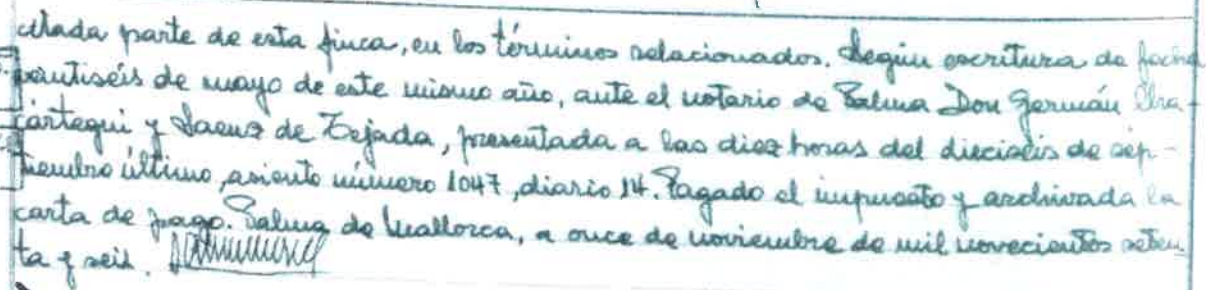 citada parte de esta finca, en los términos relacionados. Según escritura de fecha
veintiséis de mayo de este mismo año, ante el notario de Palma Don Germán Cha-
cártegui y Saenz de Tejada, presentada a las diez horas del dieciséis de sep-
tiembre último, asiento número 1047, diario 14. Pagado el impuesto y archivada la
carta de pago. Palma de Mallorca, a once de noviembre de mil novecientos seten
ta y seis.